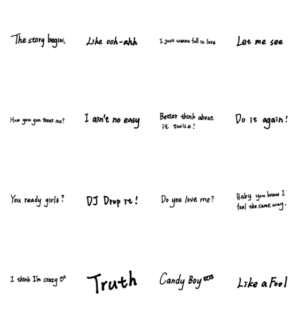 The story begins,
Like ooh-ahh
I just wanna fall in love
Let me see
How you gon treat me?
I ain't no easy
Better think about
it twice!
Do it again!
You ready girls?
DJ Drop it!
Do you love me?
Baby you know I
feel the same way.
I think I'm crazy
Truth
Candy Boy
Like a Fool